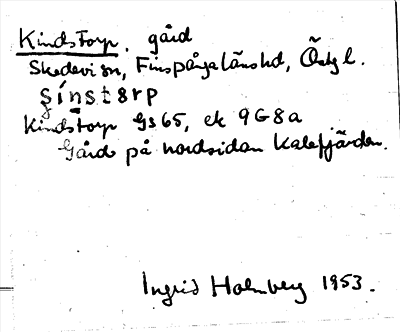 Kindstorp. gård
Skedevi sn, Finspångaläns hd, Östg l.
şínstərp
Kindstorp Gs 65, ek 9G8a
Gård på nordsidan Kalefjärden.
Ingrid Holmberg 1953.